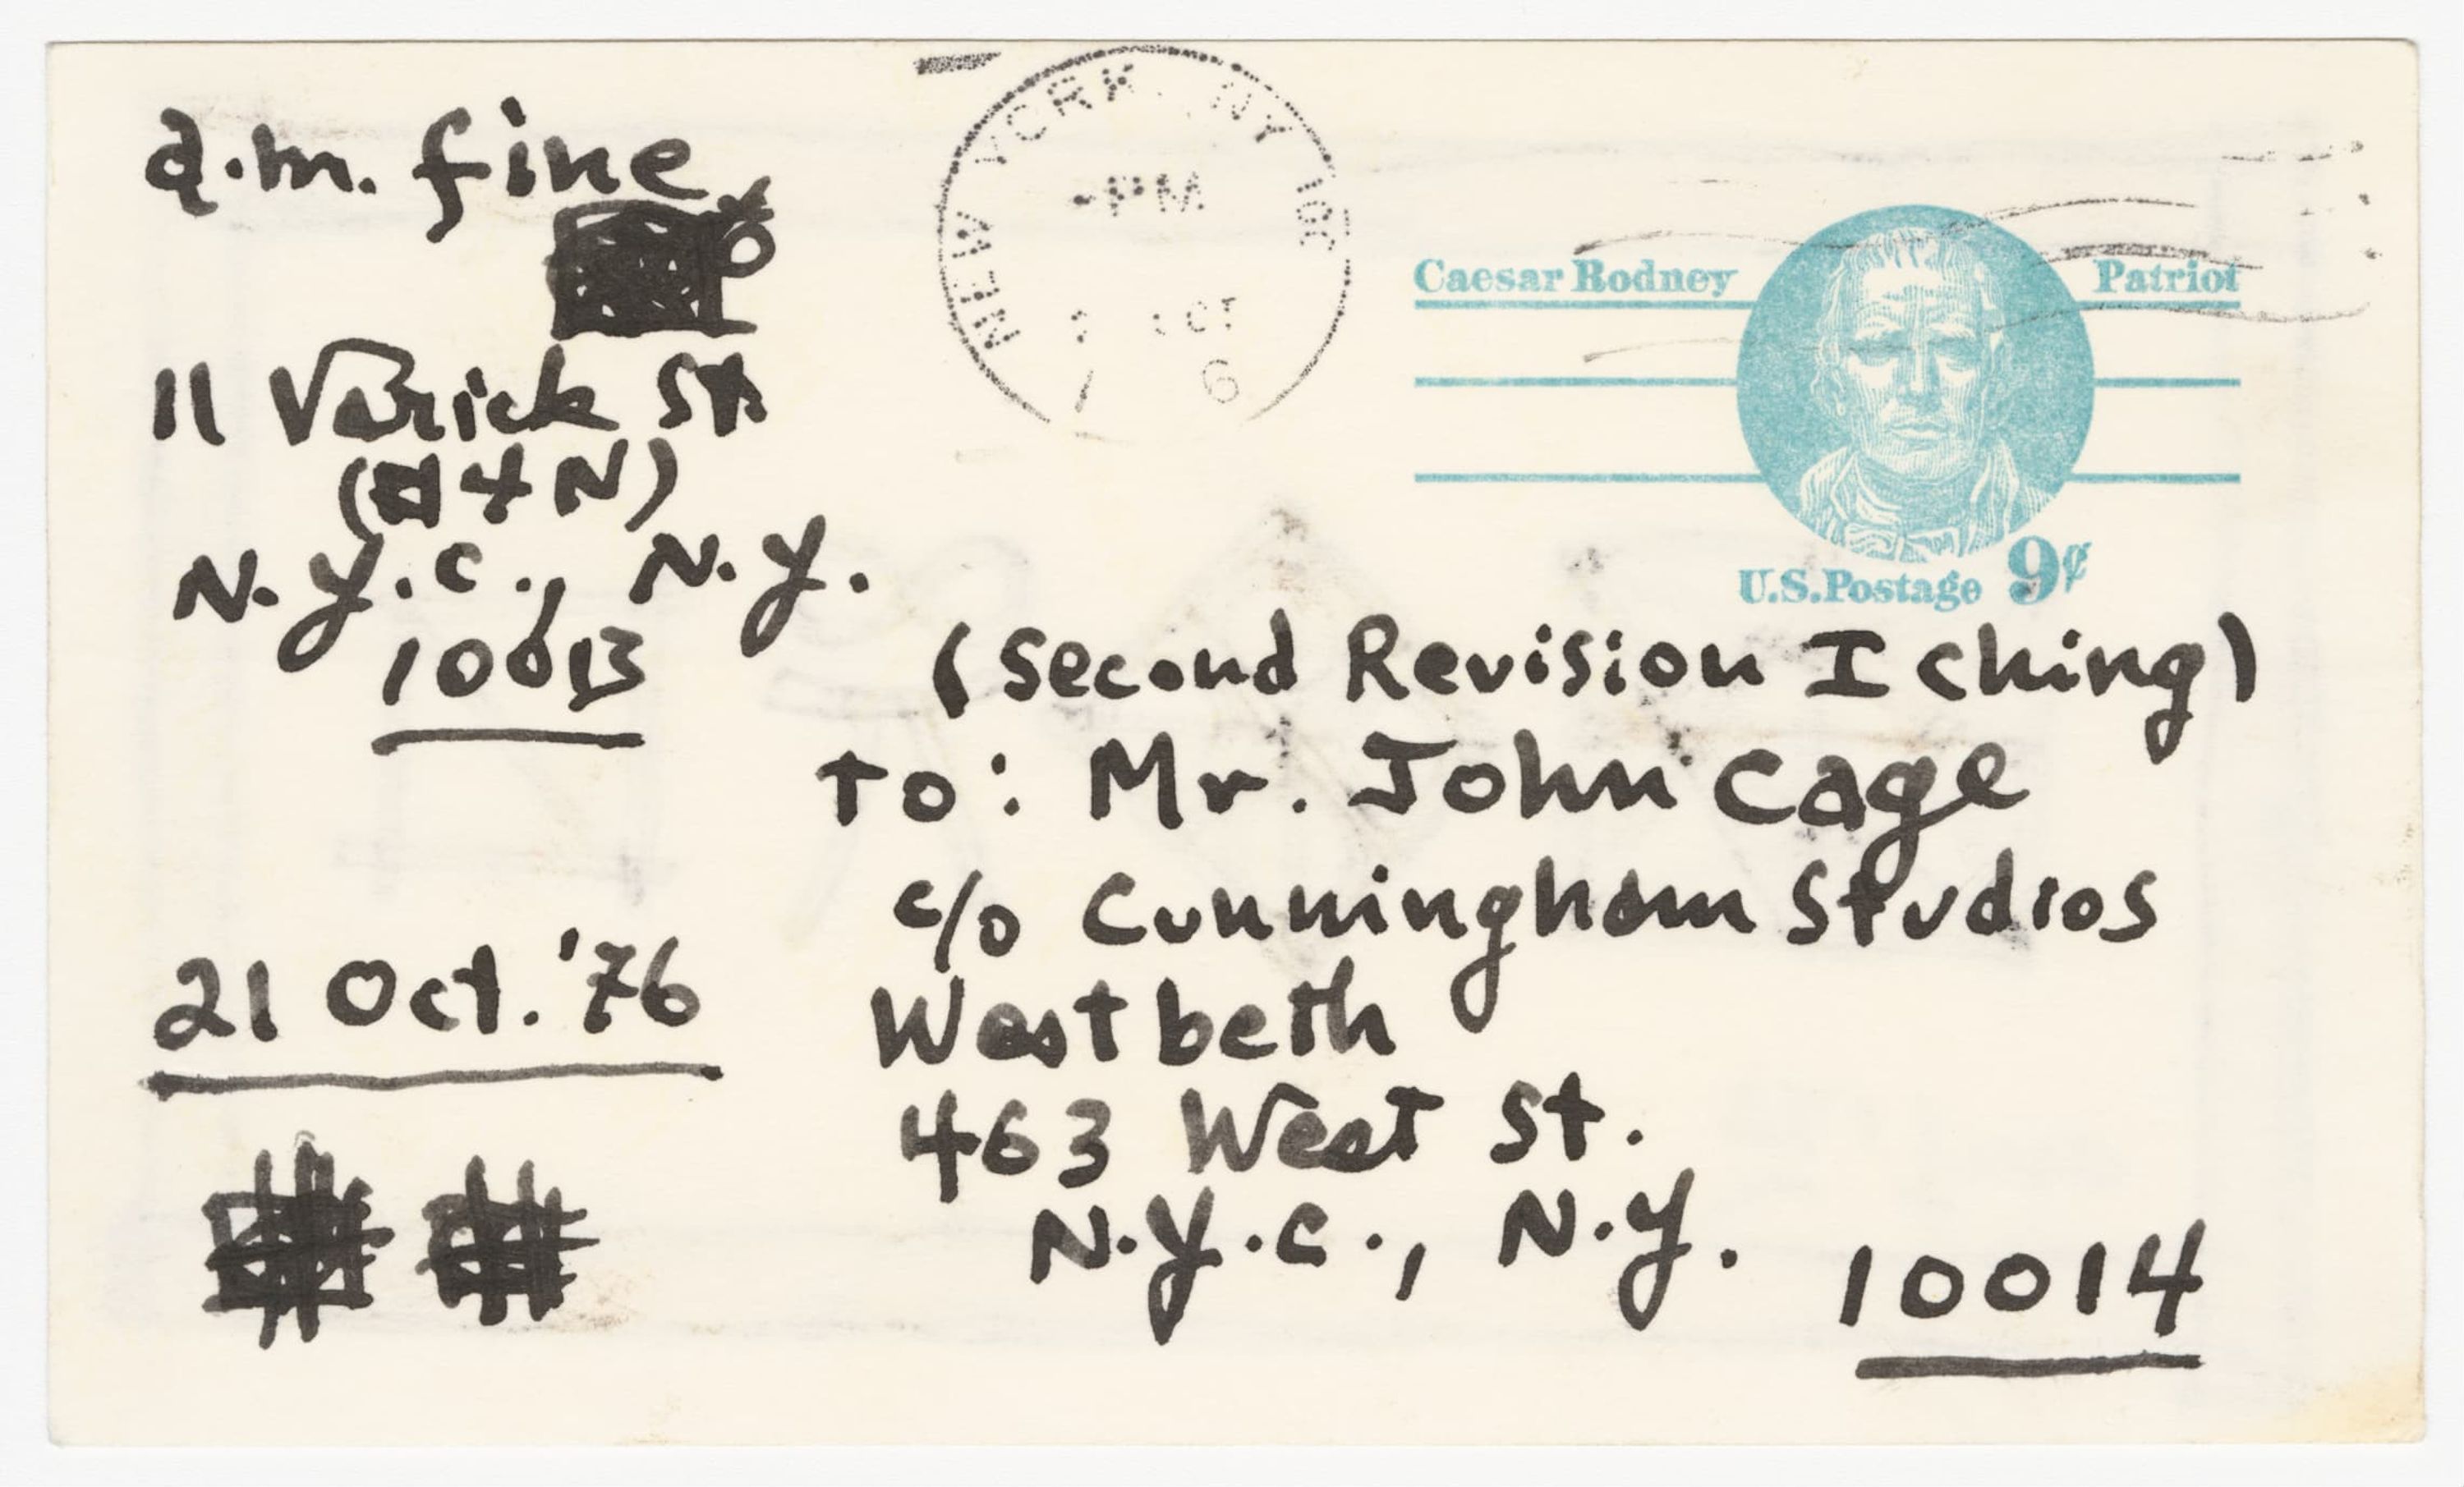 a.m. fine
11 Varick St
(# 4 N)
N.Y.C., N.Y.
10013
21 Oct. '76
NEW YORK, NY 100
PM
OCT
6
Caesar Rodney Patriot
U.S. Postage 9¢
(Second Revision I ching)
To: Mr. John Cage
c/o Cunningham Studios
Westbeth
463 West St.
N.Y.C., N.Y. 10014